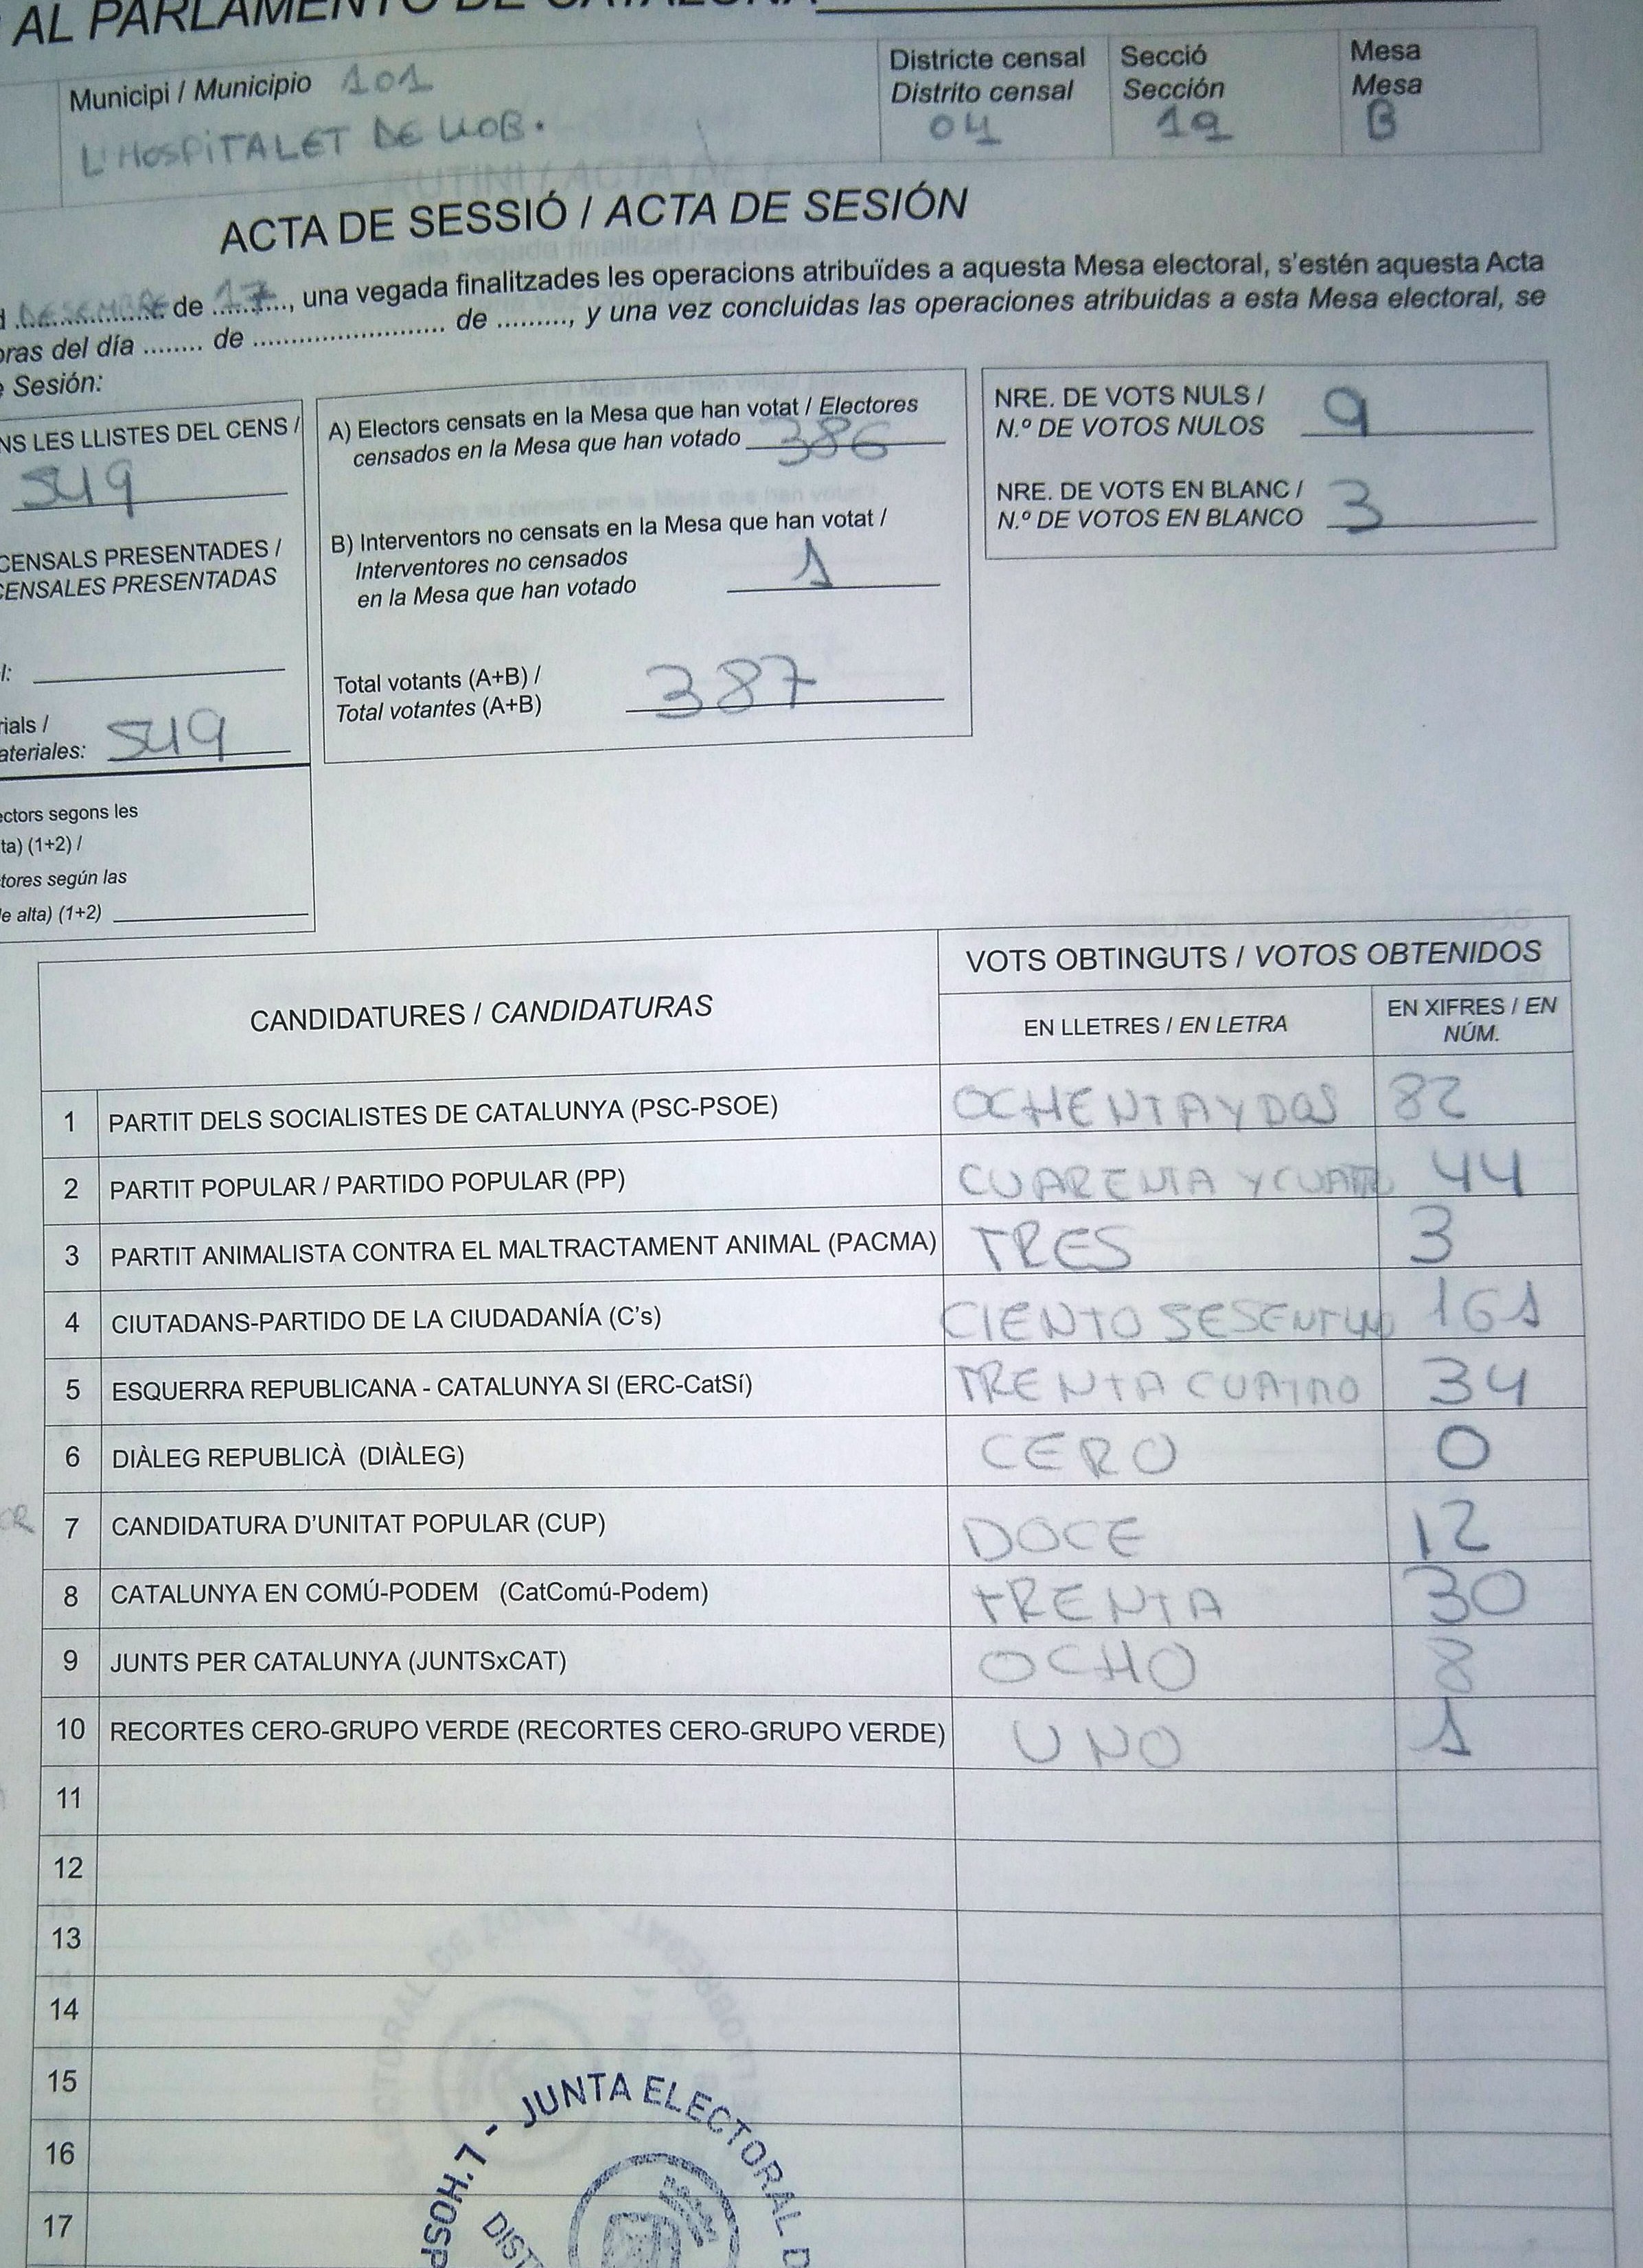 AL PARLAMENTO DE CATALUÑA
Municipi / Municipio 101
L'HOSPITALET DE LLOB.
Districte censal
Distrito censal
04
Secció
Sección
19
Mesa
Mesa
B
ACTA DE SESSIÓ / ACTA DE SESIÓN
DESEMBRE de 17, una vegada finalitzades les operacions atribuïdes a aquesta Mesa electoral, s'estén aquesta Acta
oras del día ........ de ......................... de ........., y una vez concluidas las operaciones atribuidas a esta Mesa electoral, se
e Sesión:
NS LES LLISTES DEL CENS /
549
CENSALS PRESENTADES /
CENSALES PRESENTADAS
l:
rials /
ateriales: 549
ectors segons les
ta) (1+2) /
tores según las
e alta) (1+2)
A) Electors censats en la Mesa que han votat / Electores
censados en la Mesa que han votado 386
B) Interventors no censats en la Mesa que han votat /
Interventores no censados
en la Mesa que han votado 1
Total votants (A+B) /
Total votantes (A+B) 387
NRE. DE VOTS NULS /
N.º DE VOTOS NULOS 9
NRE. DE VOTS EN BLANC /
N.º DE VOTOS EN BLANCO 3
CANDIDATURES / CANDIDATURAS
VOTS OBTINGUTS / VOTOS OBTENIDOS
EN LLETRES / EN LETRA
EN XIFRES / EN
NÚM.
1 PARTIT DELS SOCIALISTES DE CATALUNYA (PSC-PSOE) OCHENTA Y DOS 82
2 PARTIT POPULAR / PARTIDO POPULAR (PP) CUARENTA Y CUATRO 44
3 PARTIT ANIMALISTA CONTRA EL MALTRACTAMENT ANIMAL (PACMA) TRES 3
4 CIUTADANS-PARTIDO DE LA CIUDADANÍA (C's) CIENTO 161
5 ESQUERRA REPUBLICANA - CATALUNYA SI (ERC-CatSí) TRENTA CUATRO 34
6 DIÀLEG REPUBLICÀ (DIÀLEG) CERO 0
7 CANDIDATURA D'UNITAT POPULAR (CUP) DOCE 12
8 CATALUNYA EN COMÚ-PODEM (CatComú-Podem) TRENTA 30
9 JUNTS PER CATALUNYA (JUNTSxCAT) OCHO 8
10 RECORTES CERO-GRUPO VERDE (RECORTES CERO-GRUPO VERDE) UNO 1
11
12
13
14
15
16
17
L'HOSP - JUNTA ELECTORAL D
DIST